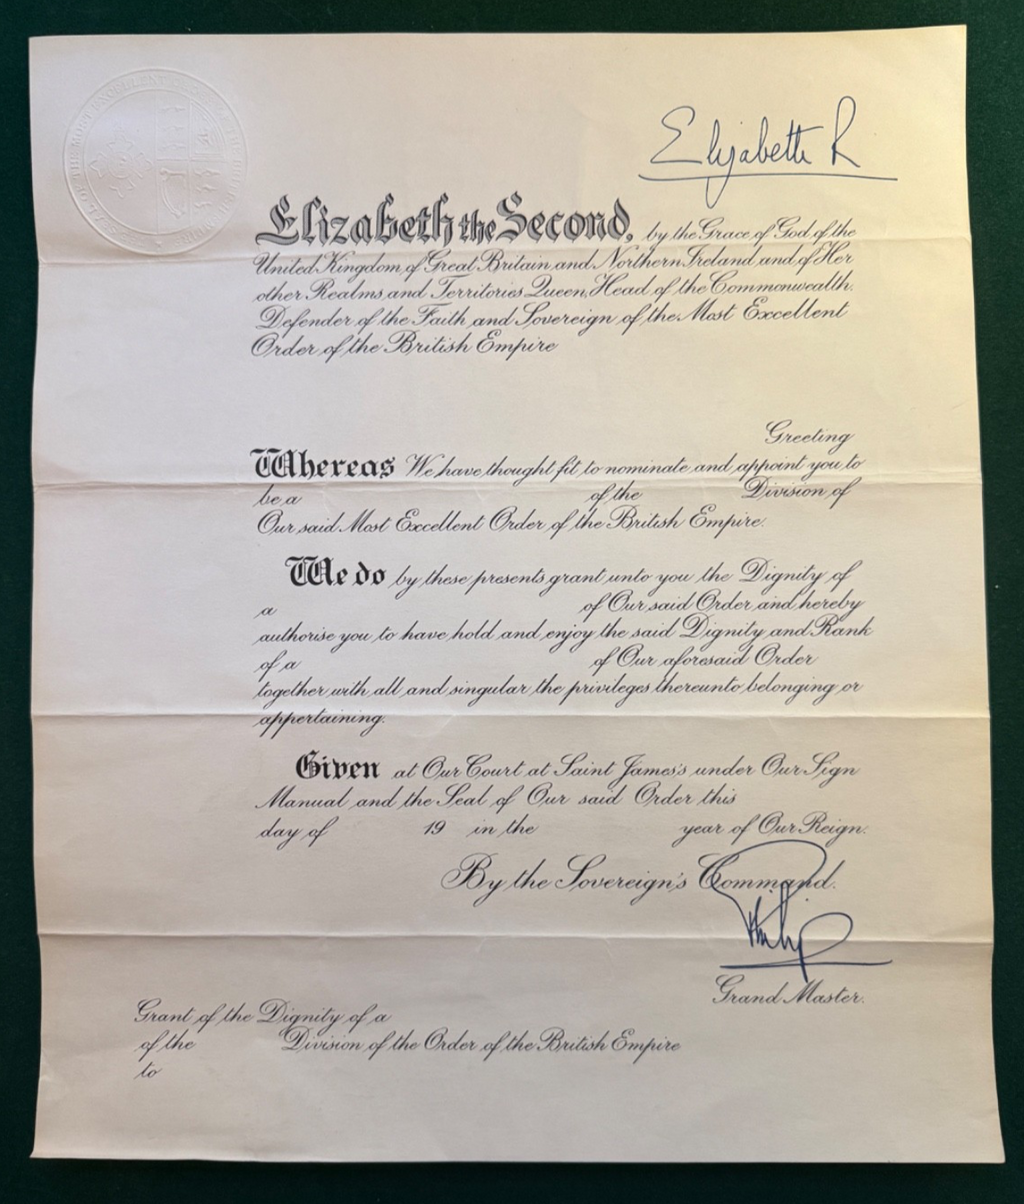 SEAL OF THE MOST EXCELLENT ORDER OF THE BRITISH EMPIRE
Elizabeth R
Elizabeth the Second, by the Grace of God of the
United Kingdom of Great Britain and Northern Ireland and of Her
other Realms and Territories Queen, Head of the Commonwealth,
Defender of the Faith and Sovereign of the Most Excellent
Order of the British Empire
Greeting
Whereas We have thought fit to nominate and appoint you to
be a of the Division of
Our said Most Excellent Order of the British Empire.
We do by these presents grant unto you the Dignity of
a of Our said Order and hereby
authorise you to have hold and enjoy the said Dignity and Rank
of a of Our aforesaid Order
together with all and singular the privileges thereunto belonging or
appertaining.
Given at Our Court at Saint James's under Our Sign
Manual and the Seal of Our said Order this
day of 19 in the year of Our Reign.
By the Sovereign's Command.
Philip
Grand Master.
Grant of the Dignity of a
of the Division of the Order of the British Empire
to